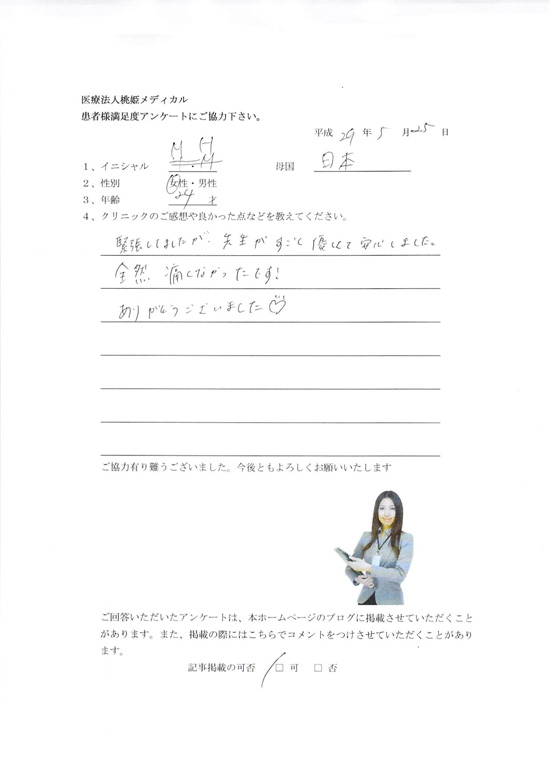 医療法人桃姫メディカル
患者様満足度アンケートにご協力下さい。
平成 29 年 5 月 25 日
1、イニシャル M H 母国 日本
2、性別 女性・男性
3、年齢 24 才
4、クリニックのご感想や良かった点などを教えてください。
緊張しましたが、先生がすごく優しくて安心しました。
全然 痛くなかったです！
ありがとうございました♡
ご協力有り難うございました。今後ともよろしくお願いいたします
ご回答いただいたアンケートは、本ホームページのブログに掲載させていただくこと
があります。また、掲載の際にはこちらでコメントをつけさせていただくことがあり
ます。
記事掲載の可否 □ 可 □ 否